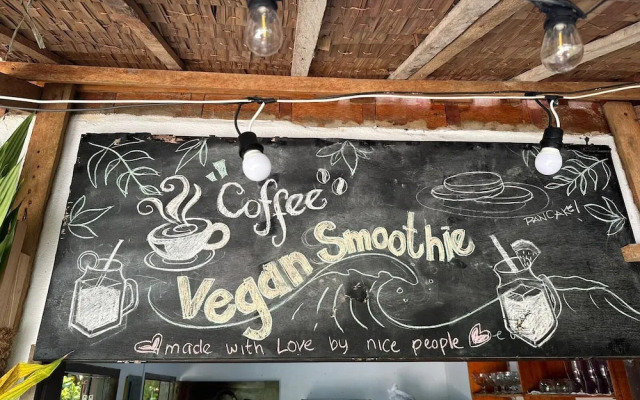 Coffee
PANCAKE
Vegan Smoothie
made with Love by nice people